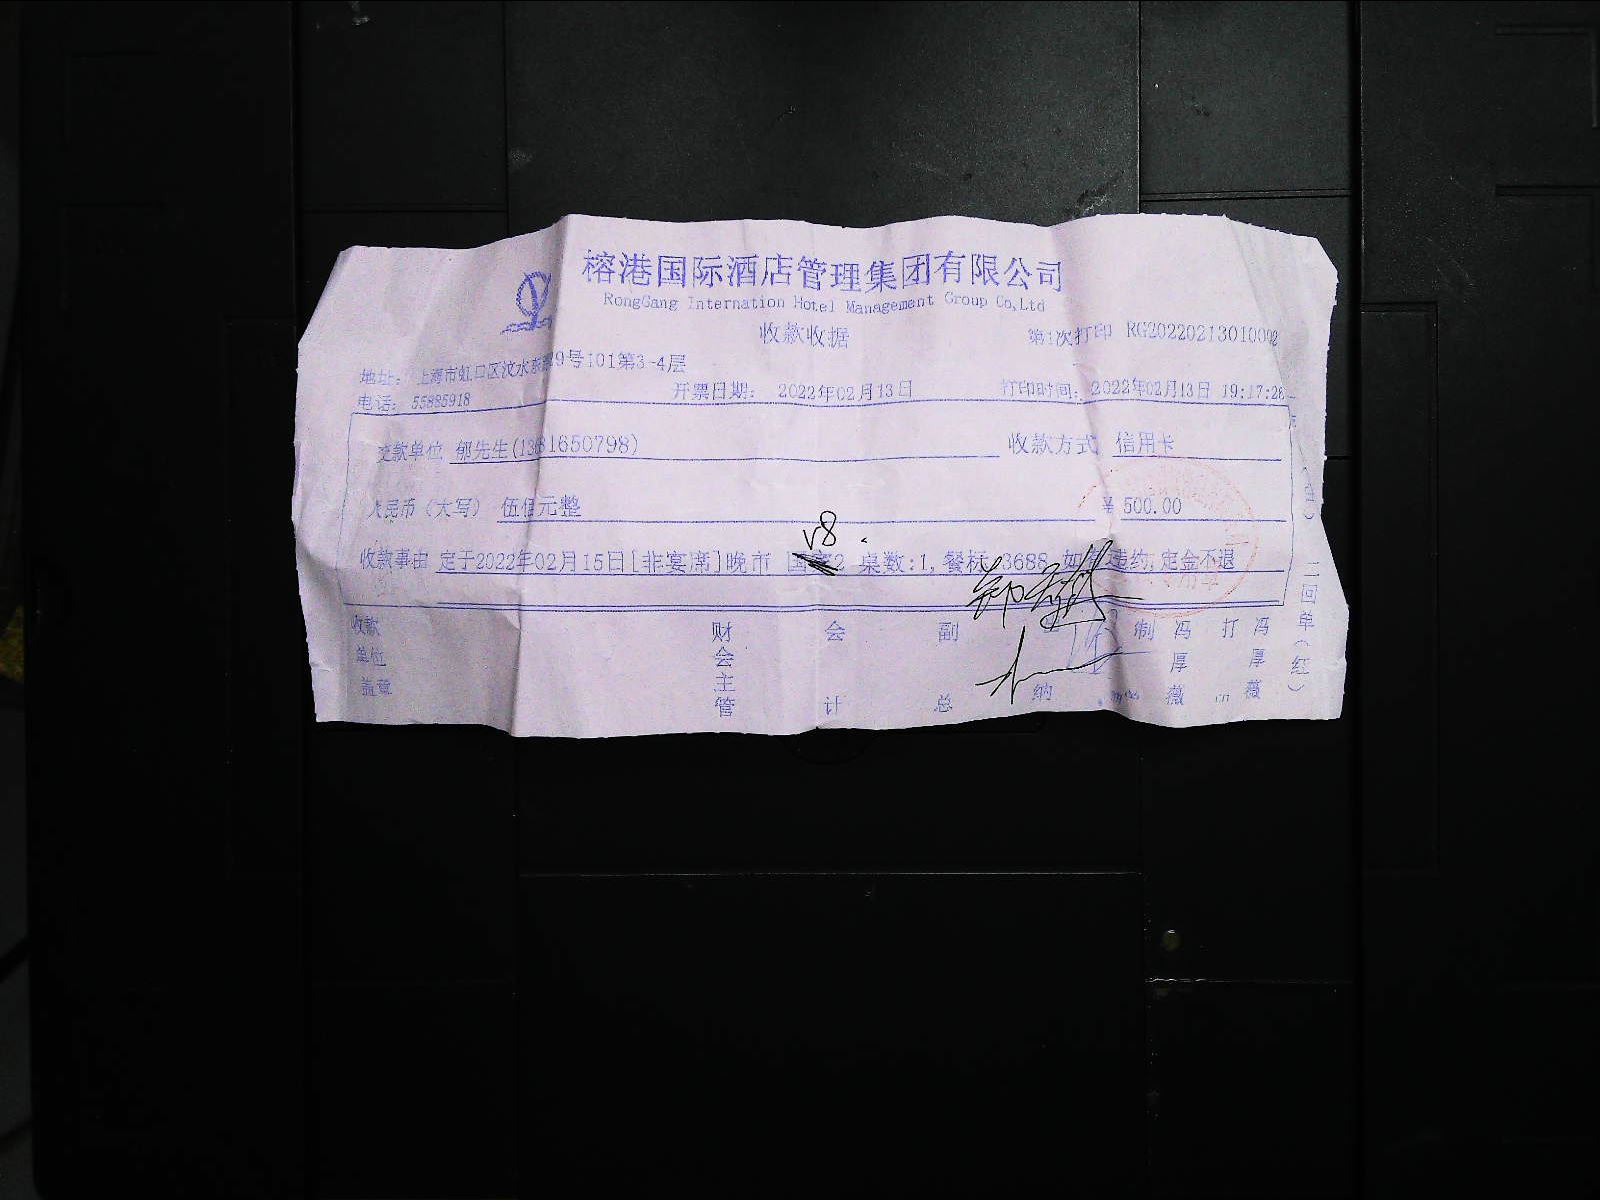 榕港国际酒店管理集团有限公司
RongGang Internation Hotel Management Group Co,Ltd
收款收据
第1次打印 RG20220213010002
地址: 上海市虹口区汶水东路9号101第3-4层
电话: 55885918
开票日期: 2022年02月13日
打印时间: 2022年02月13日 19:17:26
交款单位 郁先生(1381650798)
收款方式 信用卡
人民币(大写) 伍佰元整
¥ 500.00
v8
收款事由 定于2022年02月15日[非宴席]晚市 2 桌数:1,餐标 3688,如 违约,定金不退
收款单位盖章
财会主管
会计
副总
纳
制 冯厚薇
打印 冯厚薇
二回单(红)